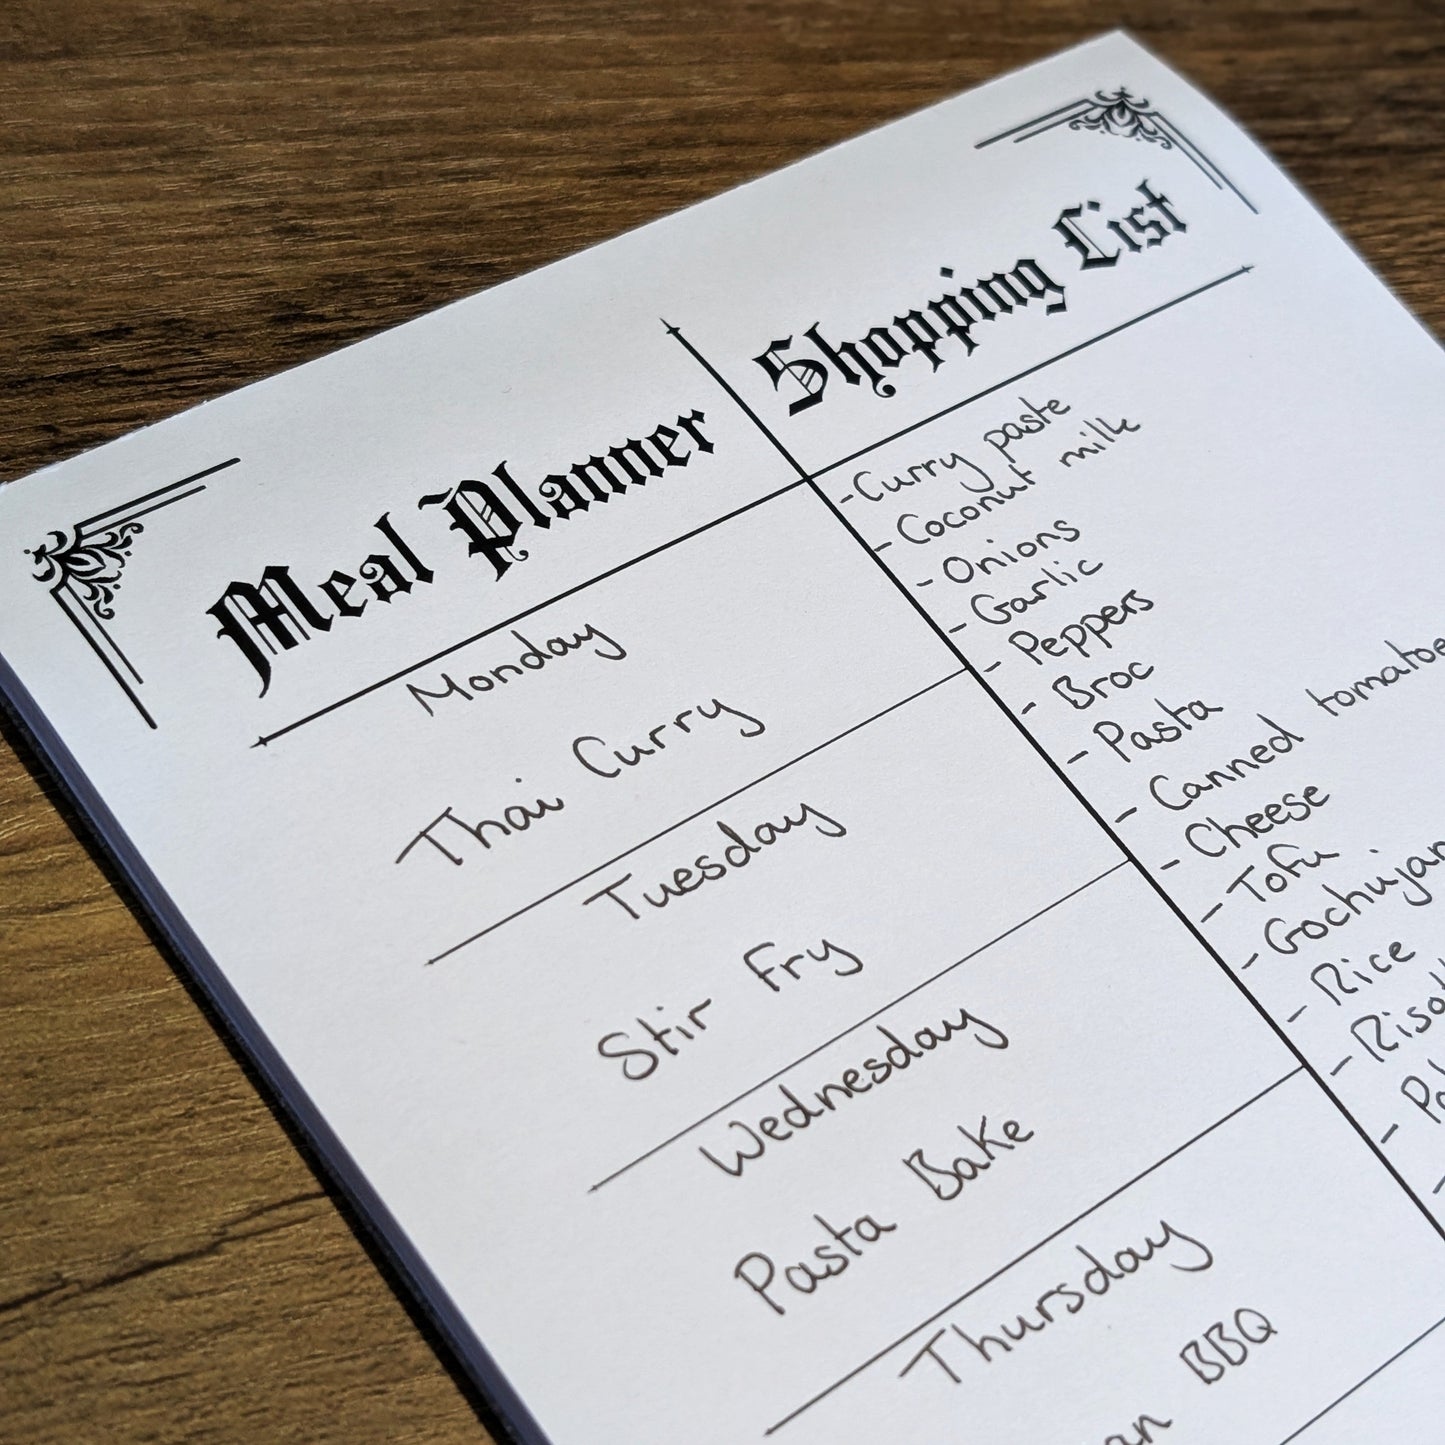 Meal Planner
Monday
Thai Curry
Tuesday
Stir Fry
Wednesday
Pasta Bake
Thursday
BBQ
Shopping List
- Curry paste
- Coconut milk
- Onions
- Garlic
- Peppers
- Broc
- Pasta
- Canned
- Cheese
- Tofu
- Rice